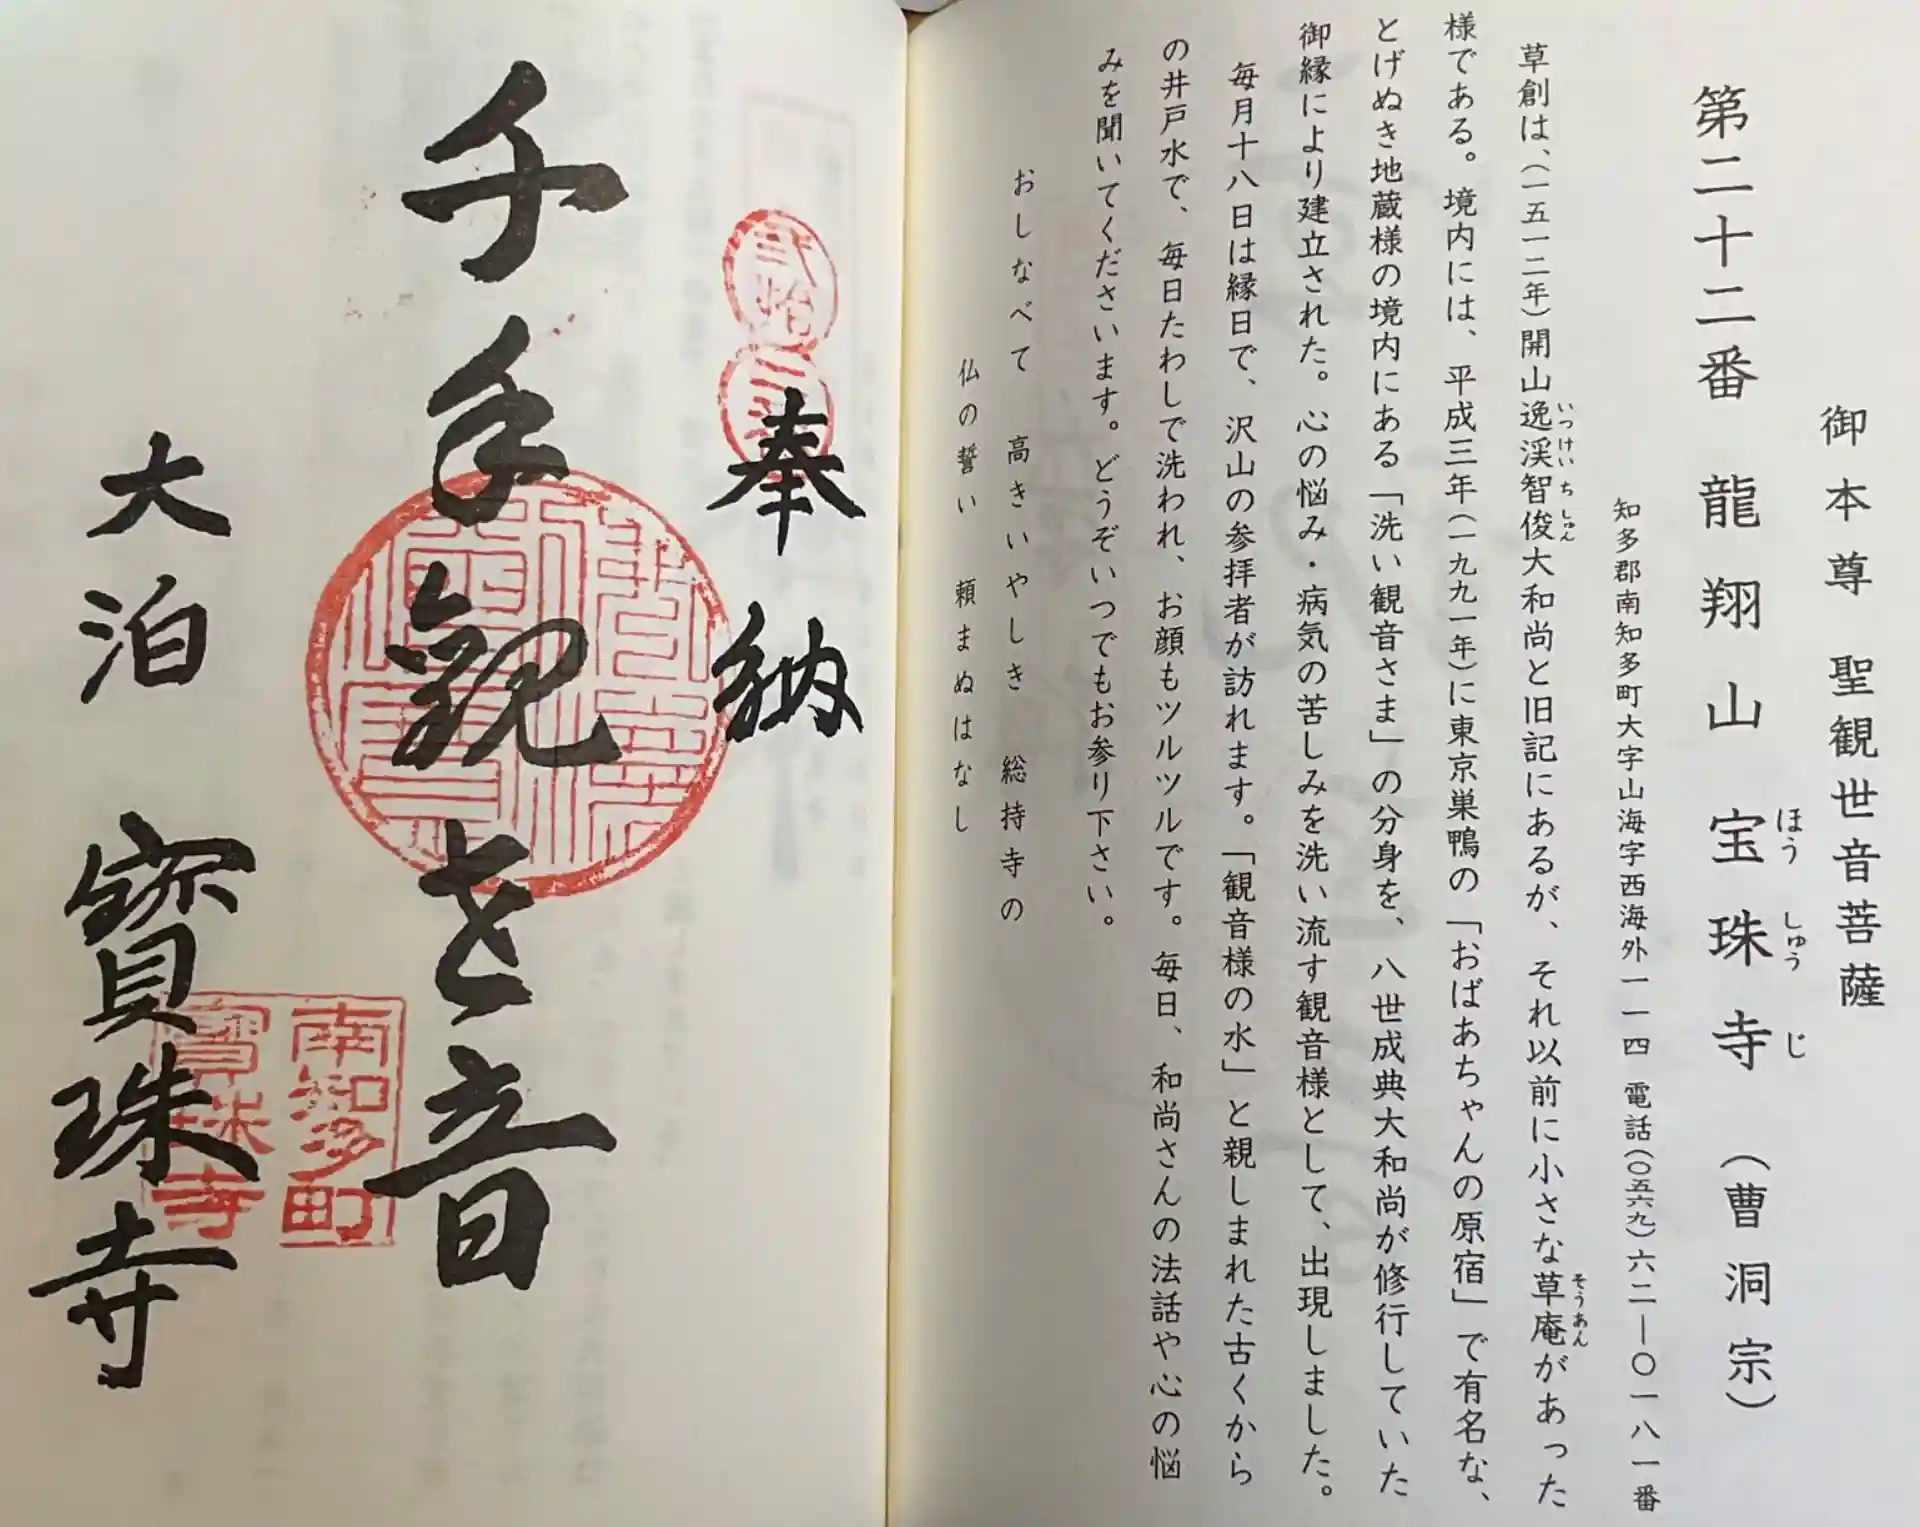 御本尊 聖観世音菩薩
第二十二番 龍翔山 宝珠寺 (曹洞宗)
ほうしゅうじ
知多郡南知多町大字山海字西海外一一四 電話(〇五六九)六二ー〇一八一番
草創は、(一五一二年)開山逸渓智俊大和尚と旧記にあるが、それ以前に小さな草庵があった
いつけいちしゅん そうあん
様である。境内には、平成三年(一九九一年)に東京巣鴨の「おばあちゃんの原宿」で有名な、
とげぬき地蔵様の境内にある「洗い観音さま」の分身を、八世成典大和尚が修行していた
御縁により建立された。心の悩み・病気の苦しみを洗い流す観音様として、出現しました。
毎月十八日は縁日で、沢山の参拝者が訪れます。「観音様の水」と親しまれた古くから
の井戸水で、毎日たわしで洗われ、お顔もツルツルです。毎日、和尚さんの法話や心の悩
みを聞いてくださいます。どうぞいつでもお参り下さい。
おしなべて 高きいやしき 総持寺の
仏の誓い 頼まぬはなし
奉納
千手観世音
大泊 寳珠寺
弐拾二番
南知多町
寳珠寺